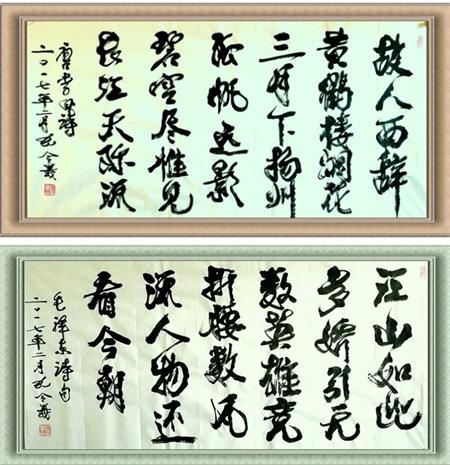 故人西辞
黄鶴楼烟花
三月下扬州
孤帆远影
碧空尽惟见
长江天际流
唐李白诗
二〇一七年二月孔令義
江山如此
多娇引无
数英雄竞
折腰数风
流人物还
看今朝
毛泽东诗句
二〇一七年二月孔令義